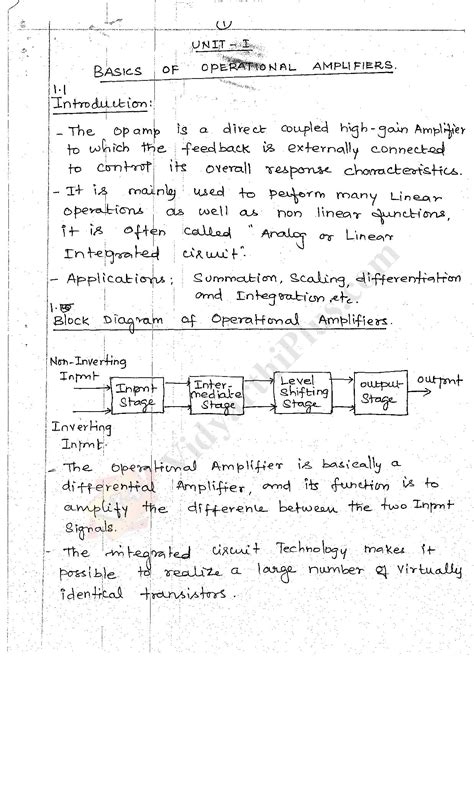 (1)
UNIT-I
BASICS OF OPERATIONAL AMPLIFIERS.
1.1
Introduction:
- The op amp is a direct coupled high-gain Amplifier
to which the feedback is externally connected
to control its overall response characteristics.
- It is mainly used to perform many Linear
operations as well as non linear functions,
it is often called "Analog or Linear
Integrated circuit".
- Applications: Summation, Scaling, differentiation
and Integration, etc.
Block Diagram of Operational Amplifiers.
Non-Inverting
Input
Input
Stage
Inter-
mediate
Stage
Level
Shifting
Stage
output
Stage
output
Inverting
Input.
- The Operational Amplifier is basically a
differential Amplifier, and its function is to
amplify the difference between the two Input
Signals.
- The integrated circuit Technology makes it
possible to realize a large number of virtually
identical transistors.